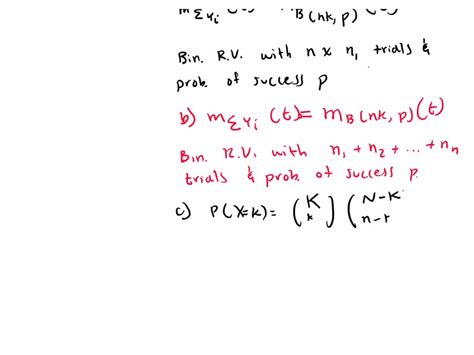 m_{ΣYi}(t) m_{B(nk, p)}(t)
Bin. R.V. with n x n, trials &
prob. of success p
b) m_{ΣYi}(t) = m_{B(nk, p)}(t)
Bin. R.V. with n₁ + n₂ + ... + nₙ
trials & prob. of success p.
c) P(X=k) = (K k) (N-K n-k